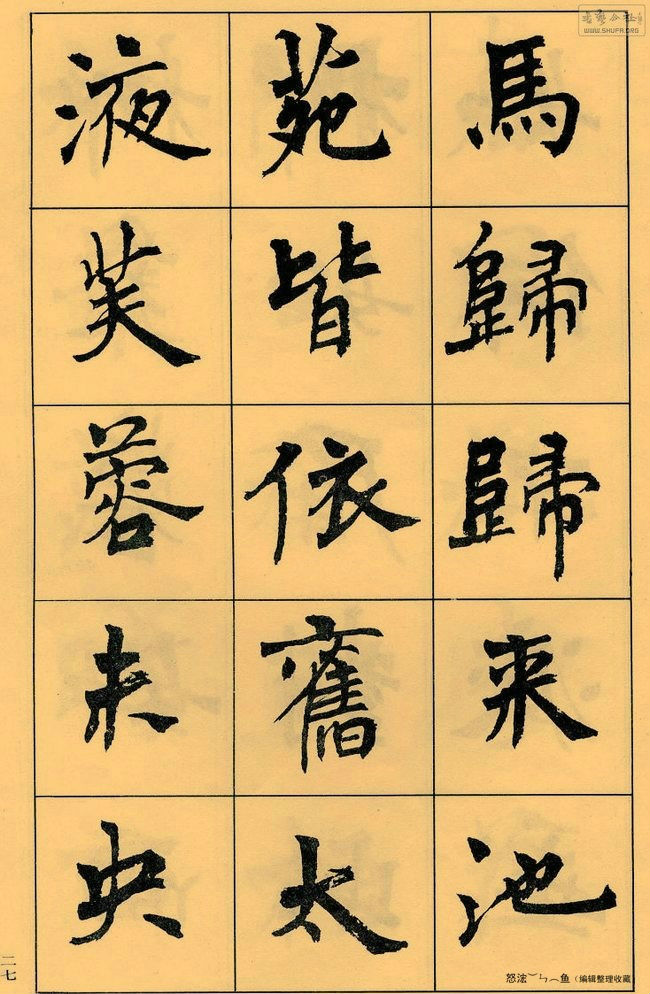 馬歸歸来池
苑皆依舊太
液芙蓉未央
二七
WWW.SHUFA.ORG
（编辑整理收藏）